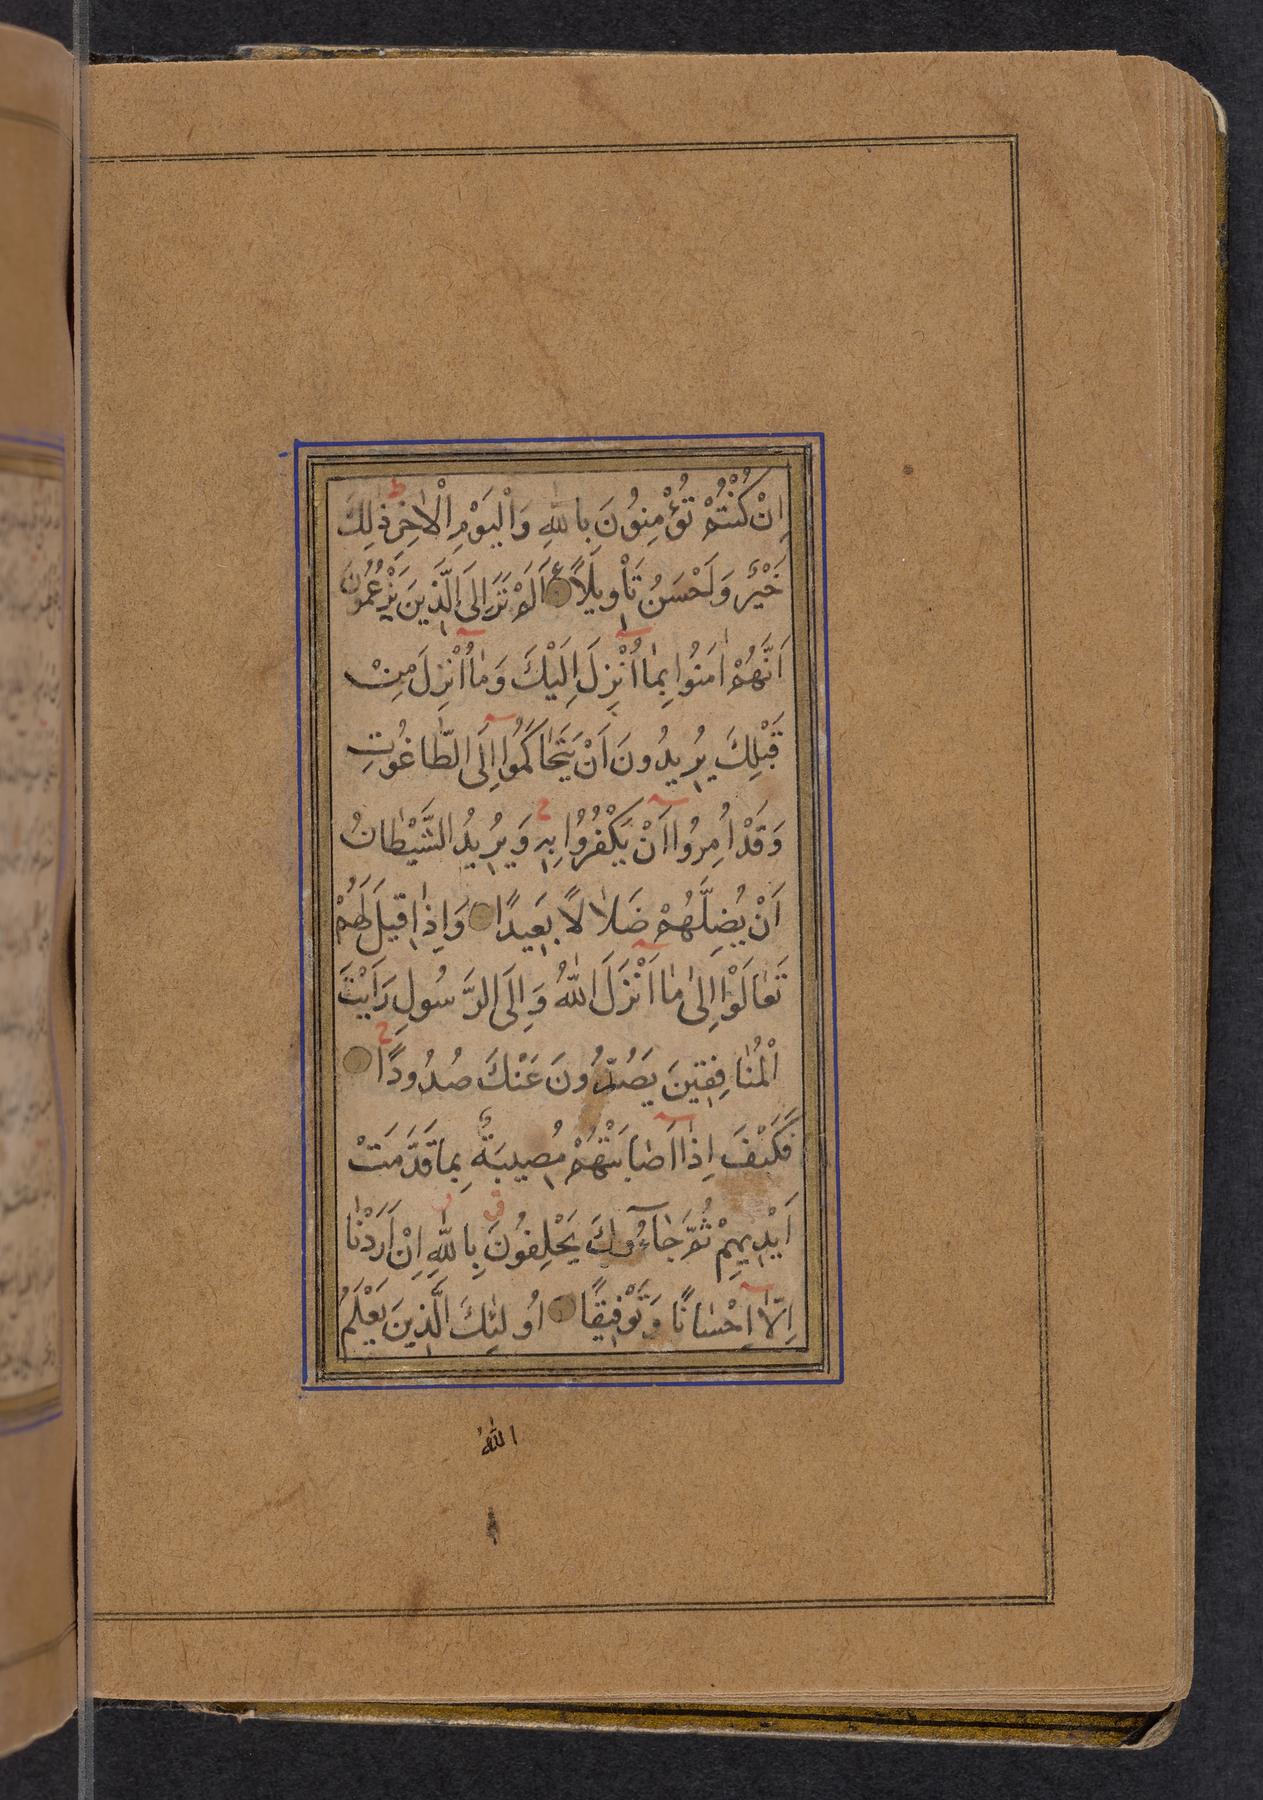 اِنْ كُنْتُمْ تُؤْمِنُونَ بِاللّٰهِ وَالْيَوْمِ الْاٰخِرِ ذٰلِكَ
خَيْرٌ وَاَحْسَنُ تَاْويلًا اَلَمْ تَرَ اِلَى الَّذينَ يَزْعُمُونَ
اَنَّهُمْ اٰمَنُوا بِمٰا اُنْزِلَ اِلَيْكَ وَمٰا اُنْزِلَ مِنْ
قَبْلِكَ يُريدُونَ اَنْ يَتَحٰاكَمُوا اِلَى الطّٰاغُوتِ
وَقَدْ اُمِرُوا اَنْ يَكْفُرُوا بِهِ وَيُريدُ الشَّيْطٰانُ
اَنْ يُضِلَّهُمْ ضَلٰالًا بَعيدًا وَاِذٰا قيلَ لَهُمْ
تَعٰالَوْا اِلىٰ مٰا اَنْزَلَ اللّٰهُ وَاِلَى الرَّسُولِ رَاَيْتَ
الْمُنٰافِقينَ يَصُدُّونَ عَنْكَ صُدُودًا
فَكَيْفَ اِذٰا اَصٰابَتْهُمْ مُصيبَةٌ بِمٰا قَدَّمَتْ
اَيْديهِمْ ثُمَّ جٰاءُوكَ يَحْلِفُونَ بِاللّٰهِ اِنْ اَرَدْنٰا
اِلّٰا اِحْسٰانًا وَتَوْفيقًا اُولٰئِكَ الَّذينَ يَعْلَمُ
اللّٰهُ